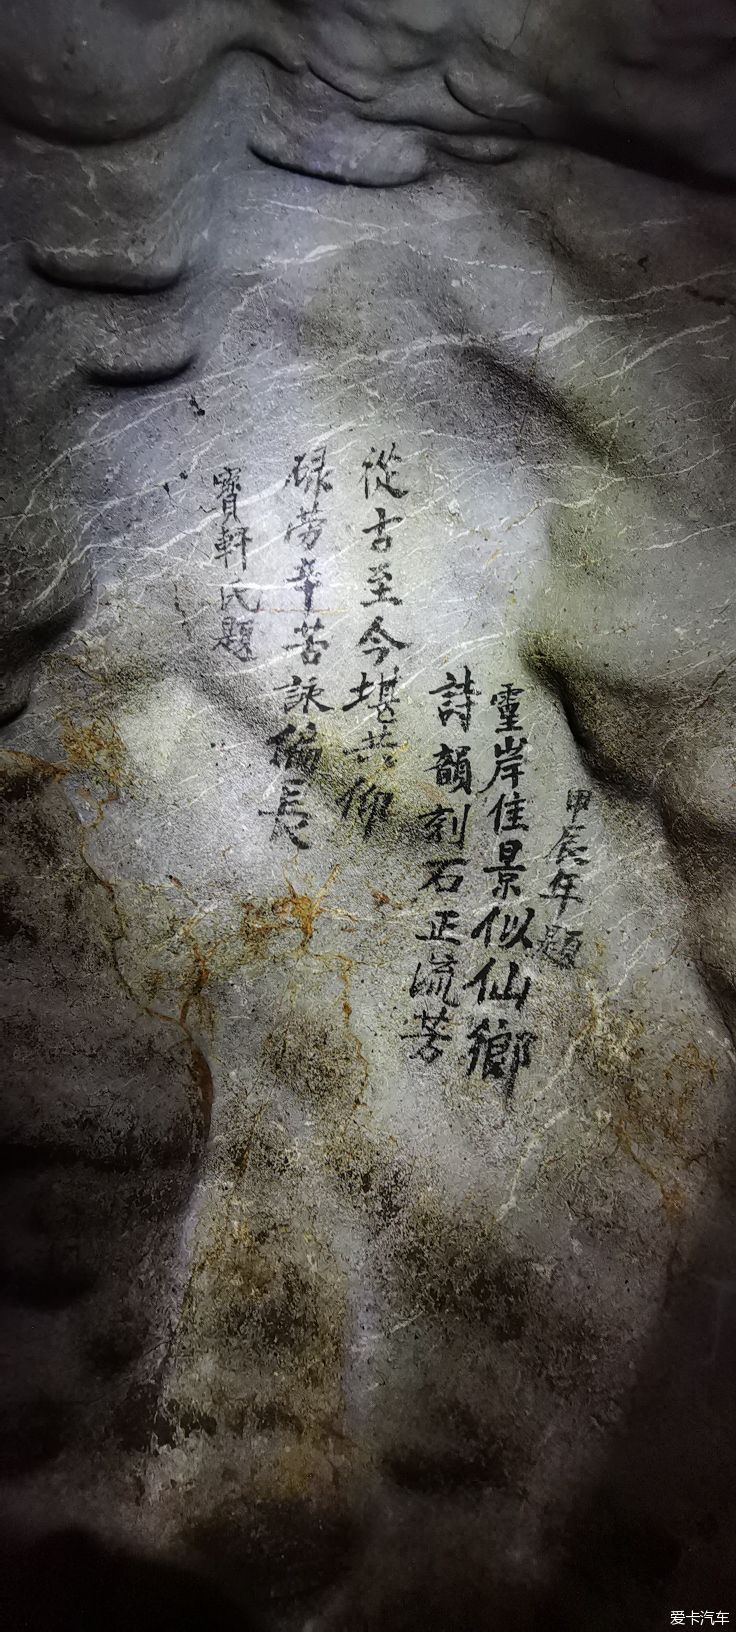 甲辰年題
靈岸佳景似仙鄉
詩韻刻石正流芳
從古至今堪共仰
碌劳辛苦詠偏長
寶軒氏題
爱卡汽车